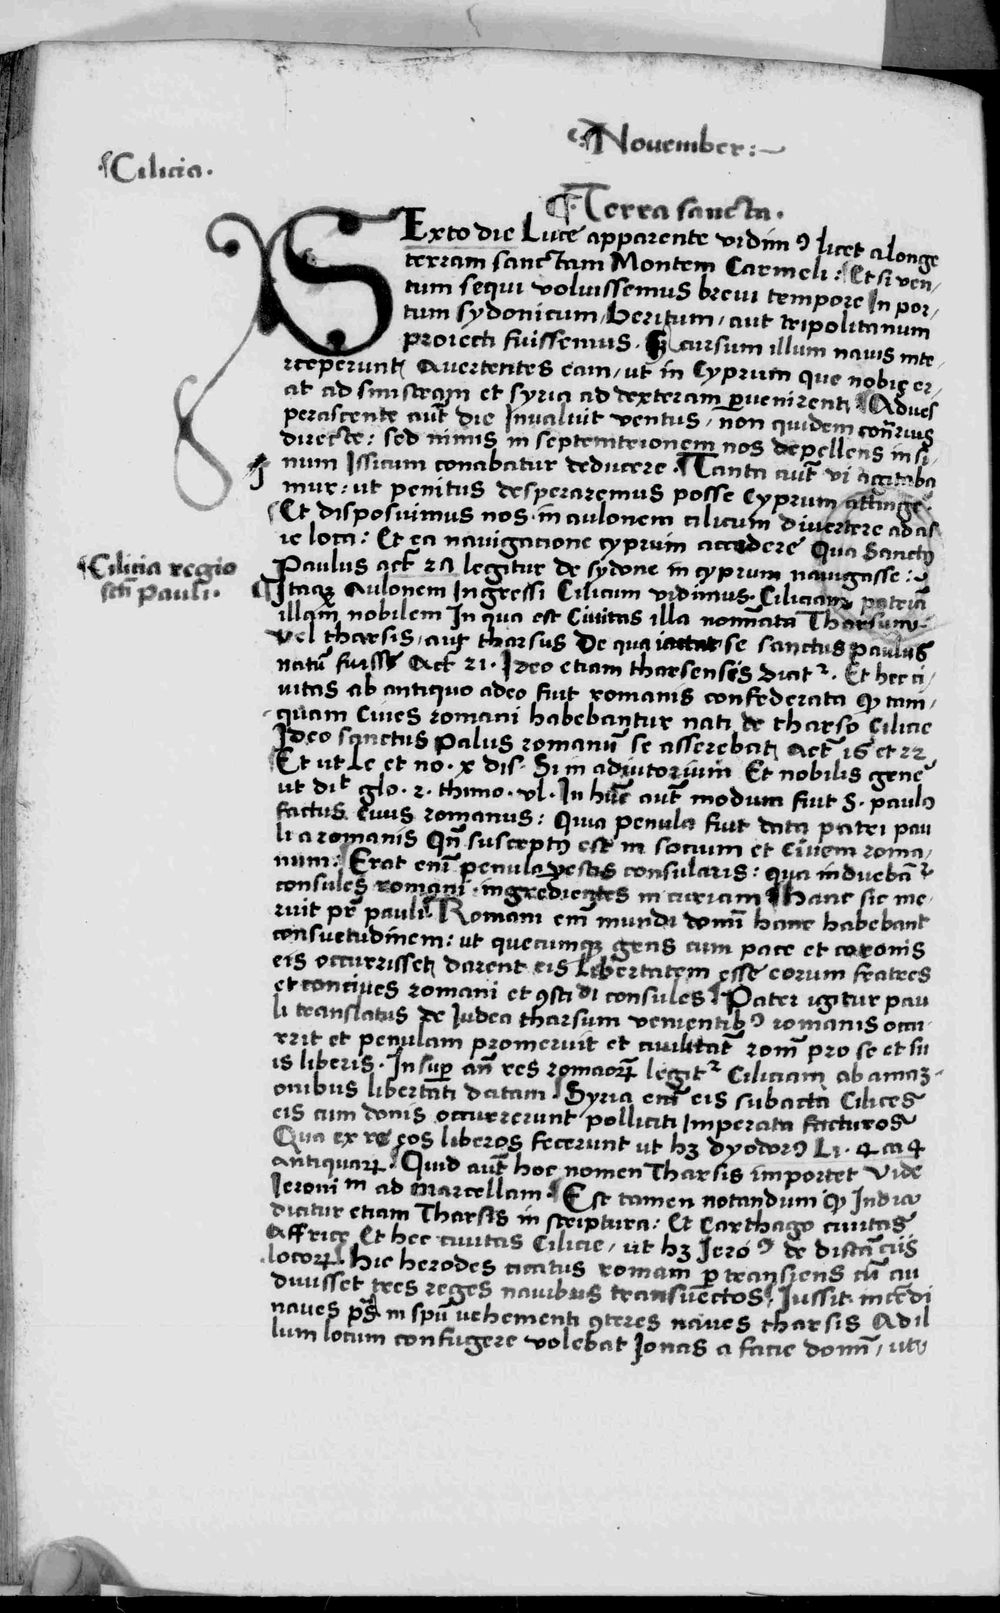 November:~
Cilicia.
Terra sancta.
SExto die Luce apparente vidimꝰ licet a longe
terram sanctam Montem Carmeli: Et si ven/
tum sequi voluissemus brevi tempore In por/
tum sydonicum/ beritum/ aut tripolitanum
proiecti fuissemus. Sꝫ cursum illum navis inte-
rceperunt Avertentes eam/ ut in Cyprum que nobis er-
at ad sinistram et syria ad dexteram pervenirent Advesꝰ
perascente aut̄ die Invaluit ventus/ non quidem cont̄rius
directe: sed nimis in septemtrionem nos depellens in si/
num Issicum conabatur deducere. Tanta aut̄ vi agitaba
mur: ut penitus desperaremus posse Cyprum attinge͛.
Et disposuimus nos in aulonem cilicum divertere ad as
ie loca: Et ea navigacione cyprum accedere Qua Sanctꝰ
Paulus act̄ 27 legitur de sydone in cyprum navigasse:~
Cilicia regio
scti Pauli.
Itaqꝫ Aulonem Ingressi Cilicum vidimus. Ciliciam patriā
illam nobilem In qua est Civitas illa nominata Tharsum/
vel tharsis/ aut tharsus De qua iactat se sanctus paulus
natū fuisse Act̄ 21. Ideo etiam tharsensis dicitᷣ. Et hec ci/
vitas ab antiquo adeo fuit romanis confederata ꝙ tam/
quam Cives romani habebantur nati de tharso Cilicie
Ideo sanctus Palus romanū se asserebat Act̄ 16 et 22
Et ut le et no. x dis. Si in adiutorium Et nobilis gene͛
ut dit̄ glo. 2. thimo. ul. In hūc aut̄ modum fuit S. paulꝰ
factus civis romanus: Quia penula fuit data patri pau
li a romanis Qn̄ susceptꝰ est in socium et Civem roma/
num: Erat enī penula vestis consularis: qua induebāᷣ
consules romani ingredientes in curiam Hanc sic me-
ruit pr̄ pauli. Romani em̄ mundi domī hanc habebant
consuetudinem: ut quecumqꝫ gens cum pace et coronis
eis occurrisset darent eis Libertatem esse eorum fratres
et concives romani et ꝯsti di consules Pater igitur pau
li translatus de Iudea tharsum venientibꝰ romanis occu-
rrit et penulam promeruit et civilitatē rom̄ pro se et su
is liberis. Insuper an̄ res romaorꝝ legitᷣ Ciliciam ab amaz-
onibus libertati datam Syria em̄ eis subacta Cilices
eis cum donis occurrerunt polliciti Imperata facturos
Qua ex re eos liberos fecerunt ut hꝫ dyodorꝰ Li. 4 ca 4
antiquarꝝ Quid aut̄ hoc nomen Tharsis importet Vide
Ieronimm ad Marcellam Est tamen notandum ꝙ India
dicitur etiam Tharsis in scriptura: Et Carthago civitas
Affrice Et hec civitas Cilicie/ ut hꝫ Jeroꝰ de distāciis
locorꝝ. hic herodes citatus romam per transiens cū au
divisset tres reges navibus transvectos Jussit incēdi
naves ps̄ in spū vehementi ꝯteres naves tharsis Ad il
lum locum confugere volebat Jonas a facie domī/ ut